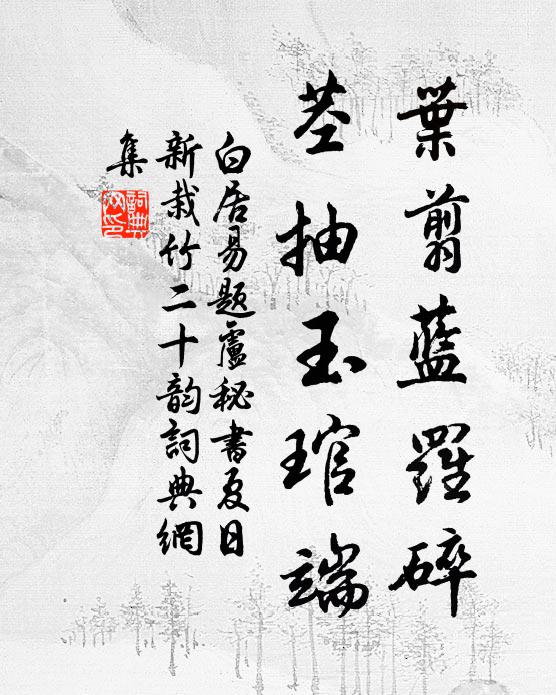 葉翦藍羅碎
莖抽玉琯端
白居易題盧秘書夏日
新栽竹二十韵詞典網
集
詞典網印